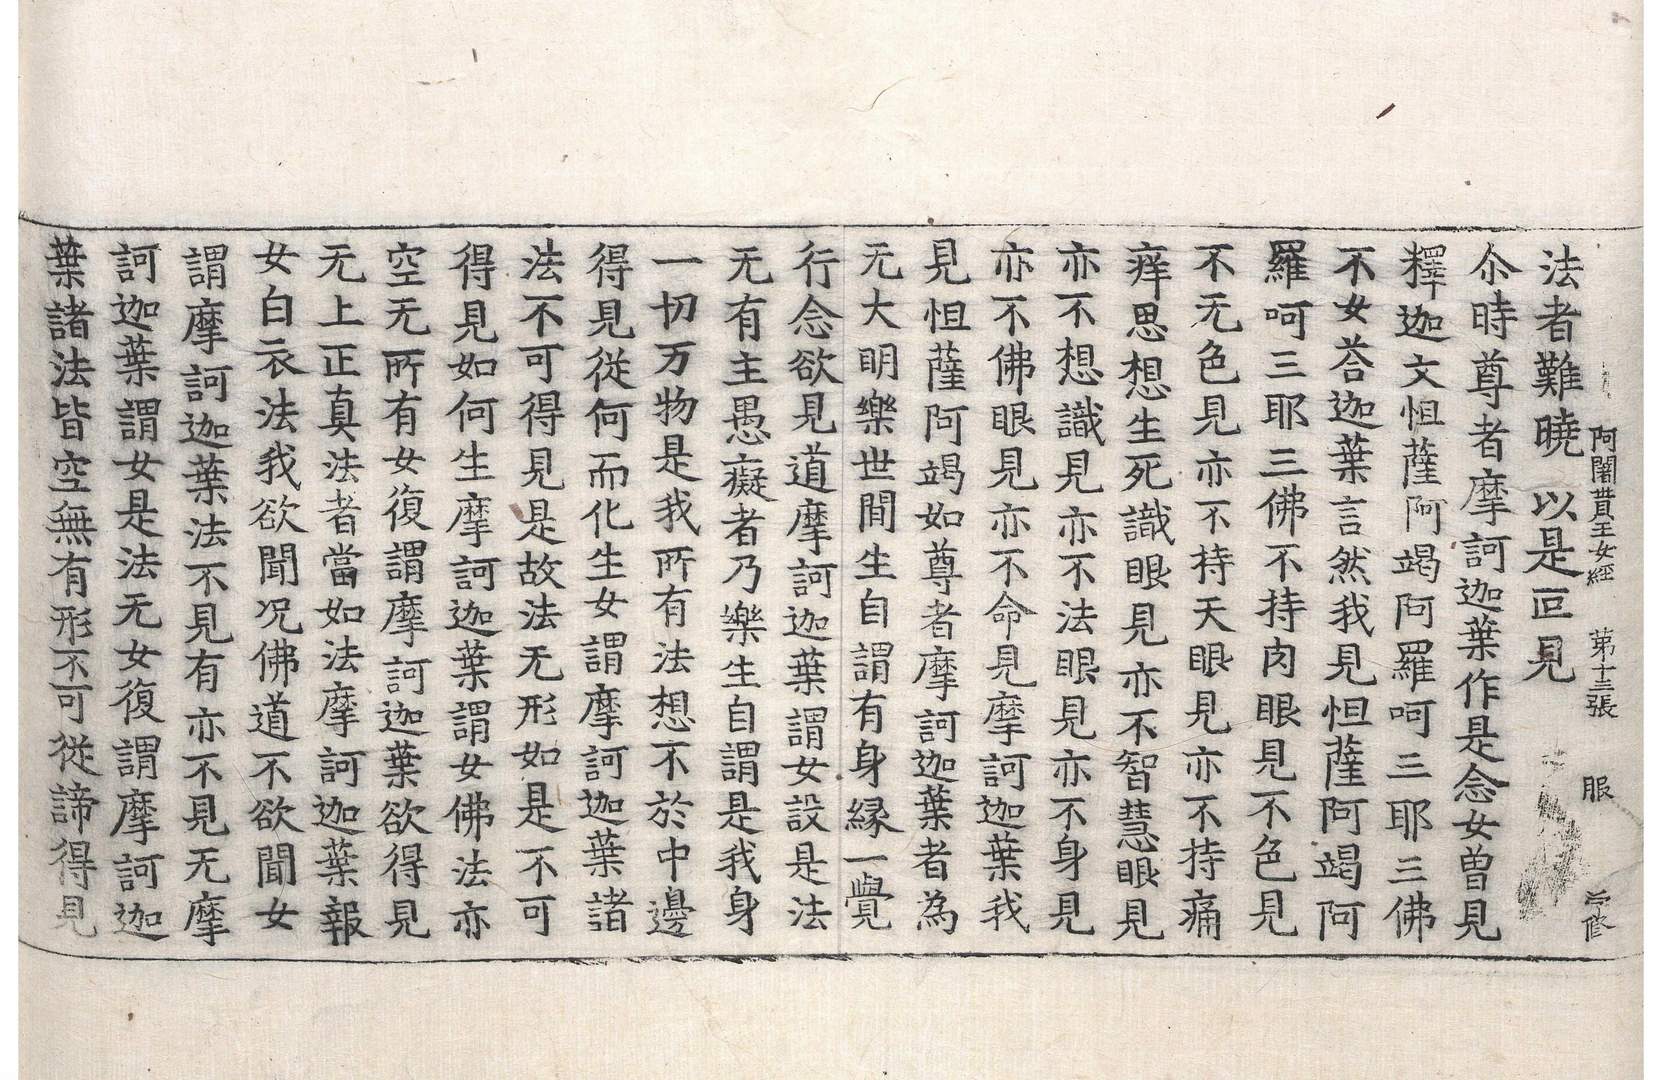 阿闍貰王女經　第十三張　服
法者難曉以是叵見
尒時尊者摩訶迦葉作是念女曾見
釋迦文怛薩阿竭阿羅呵三耶三佛
不女荅迦葉言然我見怛薩阿竭阿
羅呵三耶三佛不持肉眼見不色見
不无色見亦不持天眼見亦不持痛
痒思想生死識眼見亦不智慧眼見
亦不想識見亦不法眼見亦不身見
亦不佛眼見亦不命見摩訶迦葉我
見怛薩阿竭如尊者摩訶迦葉者為
无大明樂世間生自謂有身縁一覺
行念欲見道摩訶迦葉謂女設是法
无有主愚癡者乃樂生自謂是我身
一切万物是我所有法想不於中邊
得見從何而化生女謂摩訶迦葉諸
法不可得見是故法无形如是不可
得見如何生摩訶迦葉謂女佛法亦
空无所有女復謂摩訶迦葉欲得見
无上正真法者當如法摩訶迦葉報
女白衣法我欲聞况佛道不欲聞女
謂摩訶迦葉法不見有亦不見无摩
訶迦葉謂女是法无女復謂摩訶迦
葉諸法皆空無有形不可從諦得見